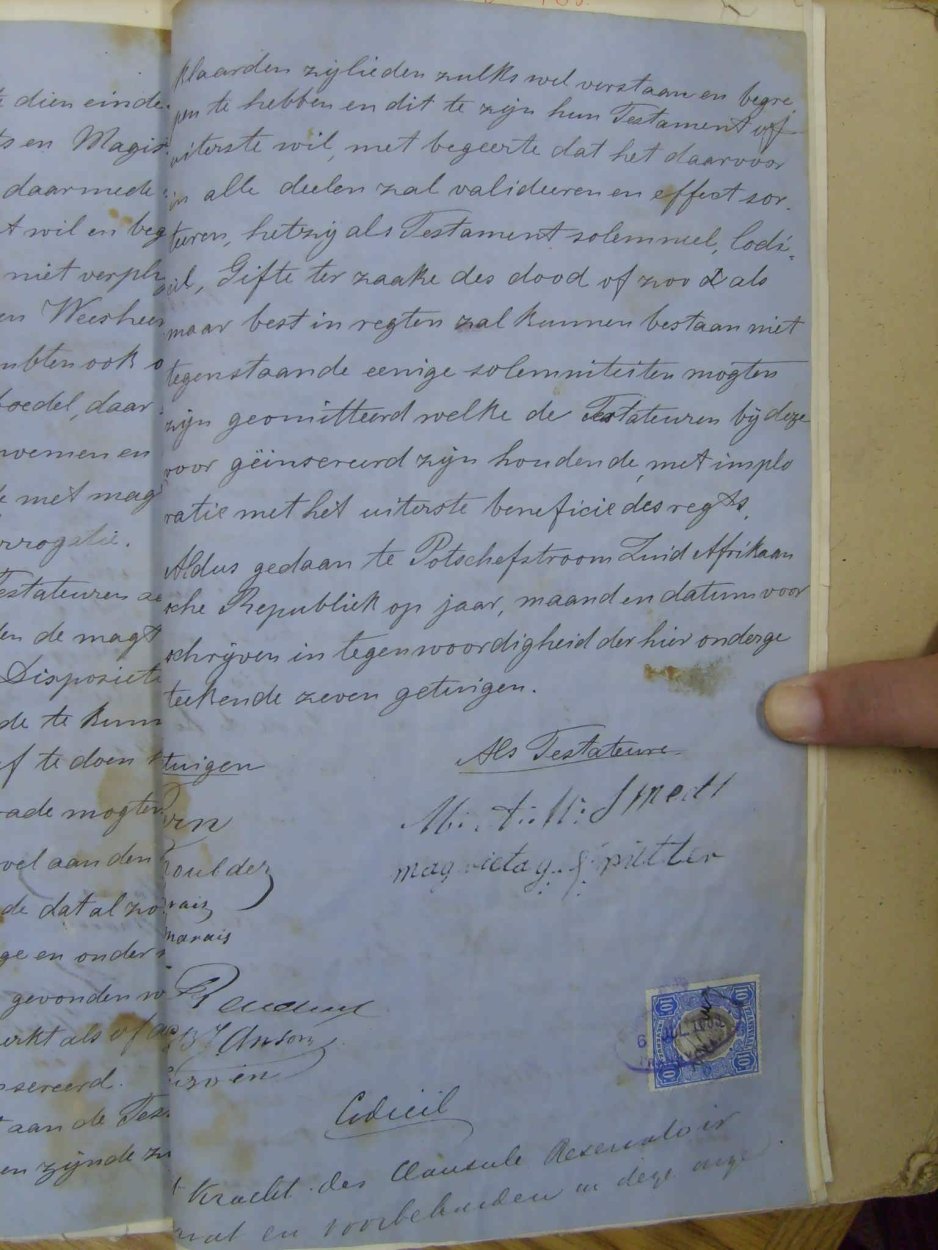 te dien einde
ts en Magis
daarmede
t wil en beg
niet verpli
en Weesheer
mbten ook o
boedel, daar
nemen en
de met mag
rrogatie.
Testateuren
den de magt
Disposiete
de te kunn
of te doen
rade mogten
wel aan den
de dat al zo
ge en onder
gevonden w
erkt als of
nsereerd.
aan de Tes
en zijnde
klaarden zijlieden zulks wel verstaan en begre
pen te hebben en dit te zijn hun Testament of
uiterste wil, met begeerte dat het daarvoor
in alle deelen zal valideeren en effect sor-
teeren, hetzij als Testament solemneel, Codi-
cil, Gifte ter zaake des dood of zoo als
maar best in regten zal kunnen bestaan niet
tegenstaande eenige solemniteiten mogten
zijn geomitteerd welke de Testateuren bij deze
voor geïnsereerd zijn houdende, met implo
ratie met het uiterste beneficie des regts.
Aldus gedaan te Potschefstroom Zuid Afrikaan
sche Republiek op jaar, maand en datum voor
schrijven in tegenwoordigheid der hier onderge
teekende zeven getuigen.
tuigen
Als Testateure
houlder
rais
marais
magrieta g. S pittler
TRANSVAAL
10/
6 JUL
Codicil
Kracht der Clausule Reservatoir
en voorbehouden in deze